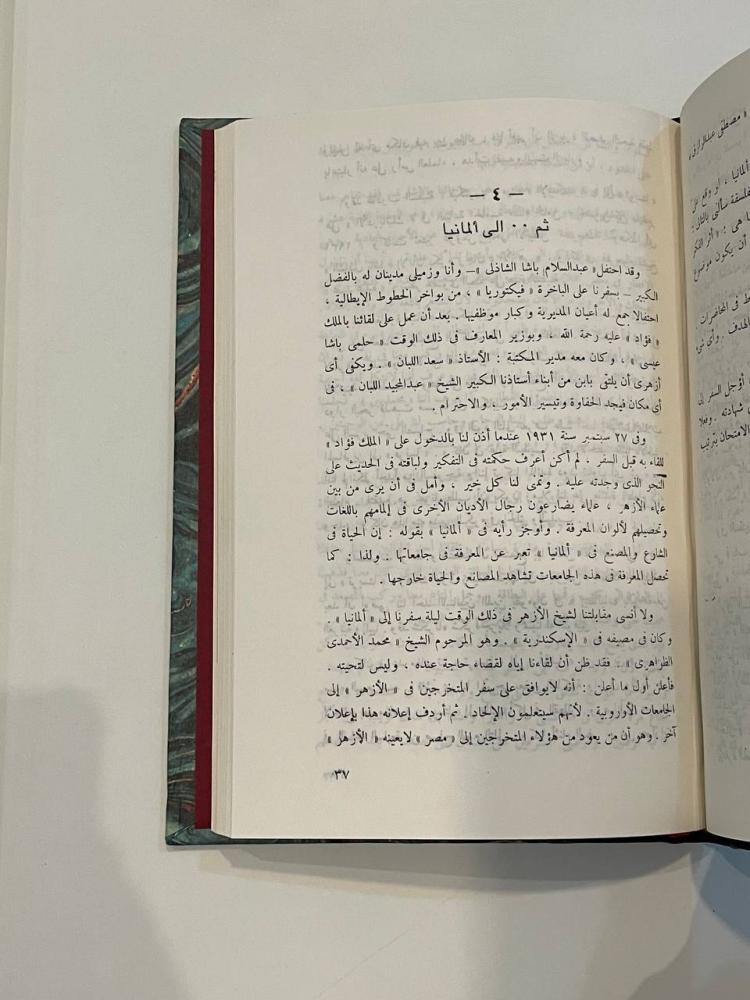 – ٤ –
ثم ٠٠ الى ألمانيا
وقد احتفل « عبدالسلام باشا الشاذلى » – وأنا وزميلى مدينان له بالفضل
الكبير – بسفرنا على الباخرة « فيكتوريا » ، من بواخر الخطوط الإيطالية ،
احتفالا جمع له أعيان المديرية وكبار موظفيها . بعد أن عمل على لقائنا بالملك
« فؤاد » عليه رحمة الله ، وبوزير المعارف فى ذلك الوقت « حلمى باشا
عيسى » ، وكان معه مدير المكتبة : الأستاذ « سعد اللبان » . ويكفى أى
أزهرى أن يلتقى بابن من أبناء أستاذنا الكبير الشيخ « عبدالمجيد اللبان » ، فى
أى مكان فيجد الحفاوة وتيسير الأمور ، والاحترام .
وفى ٢٧ سبتمبر سنة ١٩٣١ عندما أذن لنا بالدخول على « الملك فؤاد »
للقاء به قبل السفر . لم أكن أعرف حكمته فى التفكير ولباقته فى الحديث على
النحو الذى وجدته عليه . وتمنى لنا كل خير ، وأمل فى أن يرى من بين
علماء الأزهر ، علماء يضارعون رجال الأديان الأخرى فى إلمامهم باللغات
وتحصيلهم لألوان المعرفة . وأوجز رأيه فى « ألمانيا » بقوله : إن الحياة فى
الشارع والمصنع فى « ألمانيا » تعبر عن المعرفة فى جامعاتها . ولذا : كما
تحصل المعرفة فى هذه الجامعات تشاهد المصانع والحياة خارجها .
ولا أنسى مقابلتنا لشيخ الأزهر فى ذلك الوقت ليلة سفرنا إلى « ألمانيا » .
وكان فى مصيفه فى « الإسكندرية » . وهو المرحوم الشيخ « محمد الأحمدى
الظواهرى » . فقد ظن أن لقاءنا إياه لقضاء حاجة عنده ، وليس لتحيته .
فأعلن أول ما أعلن : أنه لايوافق على سفر المتخرجين فى « الأزهر » إلى
الجامعات الأوروبية . لأنهم سيتعلمون الإلحاد . ثم أردف إعلانه هذا بإعلان
آخر . وهو أن من يعود من هؤلاء المتخرجين إلى « مصر » لايعينه « الأزهر »
٣٧
« مصطفى عبدالرازق »
ألمانيا ، أو وقع على
فلسفة سألنى بالثانى :
ا هى : « أثر الفكر
أن يكون موضوع
ط فى المحاضرات .
الهدف . وأى شىء
أؤجل السفر إلى
شهادته . وفعلا
الامتحان بترتيب